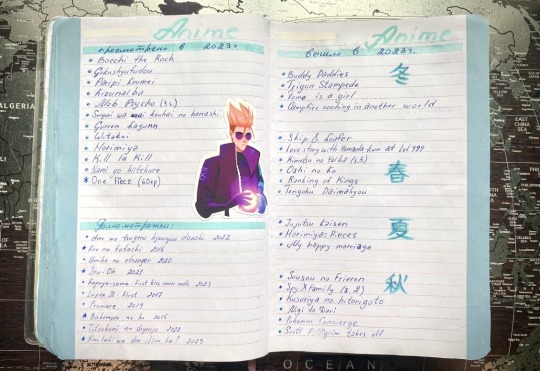 Anime
просмотрено в 2023г.
Bocchi the Rock
Gokushyufudou
Paripi Koumei
Kizunaiba
Mob Psycho (3s.)
kouhai no hanashi
Gurren Lagann
Horimiya
Kill la Kill
Kami no hitchure
One Piece (60ep)
Полнометражки:
ame wo tsugeru hyouryuu danchi 2022
Koe no katachi 2016
Umibe no etranger 2020
Inu-Oh 2021
Kaguya-sama: First Kiss never ends 2023
Lupin III: First 2019
Promare 2019
Bakemono no ko 2015
no 2022
Kimitachi wa dou ikiru ka? 2023
Anime
вышло в 2023г.
冬
Buddy Daddies
Trigun Stampede
Tomo is a girl
Campfire cooking in another world
春
Skip & Loafer
Love story with Yamada kun at Lvl 999
Kimetsu no Yaiba (s.3)
Oshi no Ko
Ranking of Kings
Tengoku Daimakyou
夏
Jujutsu Kaisen
Horimiya: Pieces
My happy marriage
秋
Sousou no Frieren
Spy X Family (s. 2)
Kusuriya no hitorigoto
Migi to Dari
Pokemon Concierge
Scott Pilligrim takes off
OCEAN